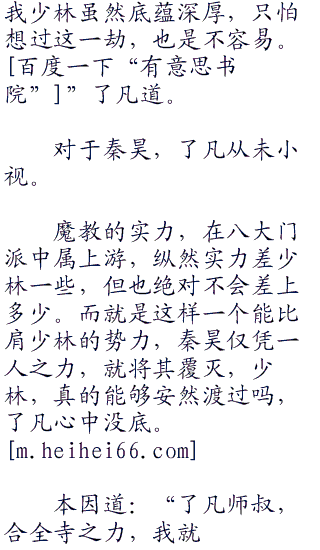 我少林虽然底蕴深厚，只怕
想过这一劫，也是不容易。
[百度一下“有意思书
院”]”了凡道。
对于秦昊，了凡从未小
视。
魔教的实力，在八大门
派中属上游，纵然实力差少
林一些，但也绝对不会差上
多少。而就是这样一个能比
肩少林的势力，秦昊仅凭一
人之力，就将其覆灭，少
林，真的能够安然渡过吗，
了凡心中没底。
[m.heihei66.com]
本因道：“了凡师叔，
合全寺之力，我就